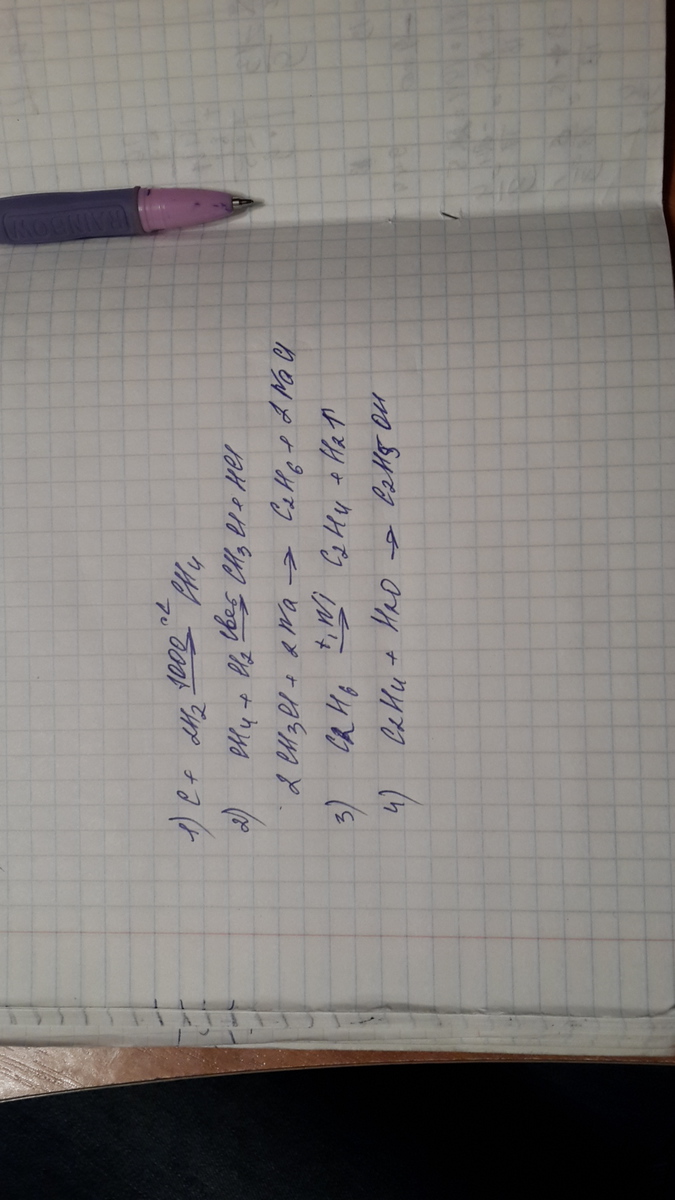 1) C + 2H2 1000 °C → CH4
2) CH4 + H2 свет → CH3Cl + HCl
2CH3Cl + 2Na → C2H6 + 2NaCl
3) C2H6 t, Ni → C2H4 + H2↑
4) C2H4 + H2O → C2H5OH